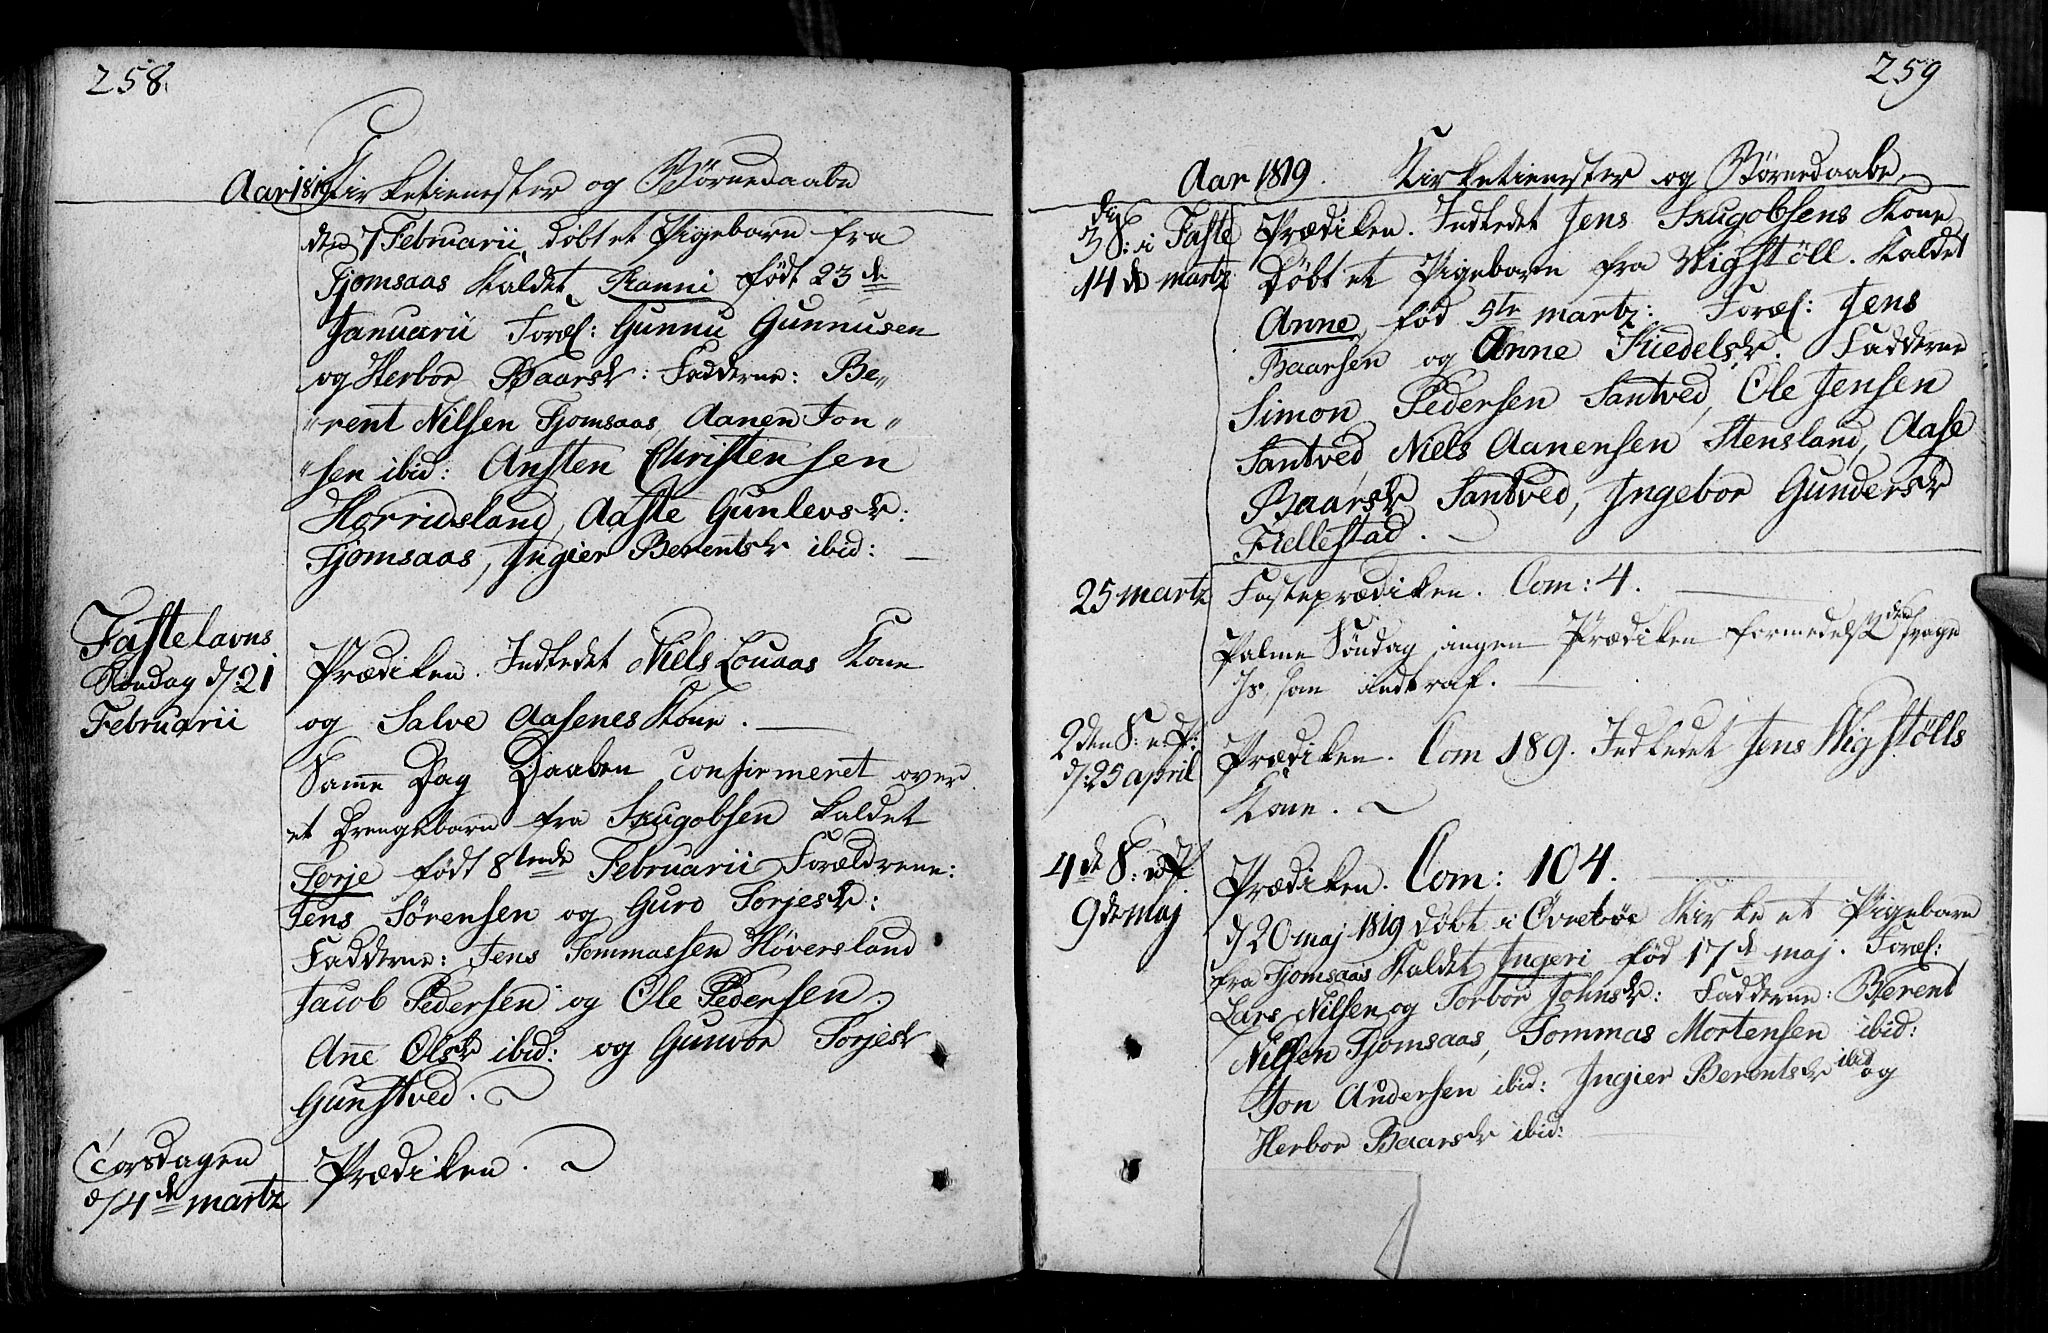 258.
Aar 1819 Kirketienester og Børnedaabe
den 7 Februarii døbt et Pigebarn fra
Tjomsaas Kaldet Ranni født 23 de
Januarii Foræl: Gunnu Gunnusen
og Herbor Baarsdr: Fadderne: Be„
„rent Nilsen Tjomsaas, Aanen Jon„
„sen ibid: Ansten Christensen
Horrisland, Aaste Gunlevsdr:
Tjomsaas, Ingier Berentsdr ibid:
Fastelavns
Søndag d/21
Februarii
Prædiken. Indledet Niels Louaas Kone
og Salve Aasenes Kone.
Samme Dag Daaben confirmeret over
et Drengebarn fra Skugobsen kaldet
Terje født 8tende Februarii Forældrene:
Jens Sørensen og Guro Torjesdr:
Fadderne: Jens Tommassen Høversland
Jacob Pedersen og Ole Pedersen
Anne Olsdr ibid: og Gunvor Torjesdr
Gunstved.
Torsdagen
d/4 de martz
Prædiken.
259
Aar 1819. Kirketienester og Børnedaabe
3 S: i Faste
14 de martz
Prædiken. Indledet Jens Skugobsens Kone
Døbt et Pigebarn fra Wigstøll. Kaldet
Anne, fød 5te martz: Foræl: Jens
Baarsen og Anne Kiedelsdr. Fadderne
Simon Pedersen Santved, Ole Jensen
Santved, Niels Aanensen Stensland, Aase
Baarsdr Santved, Ingebor Gundersdr
Fiellestad.
25 martz
Fasteprædiken. Com: 4.
Palme Søndag ingen Prædiken formedelst den svage
Is, som indtraf.
2den S: e. P:
d/25 april
Prædiken. Com 189. Indledet Jens Wigstølls
Kone.
4 de S: e. P.
9 de Maj
Prædiken. Com: 104.
d/20 maj 1819 døbt i Øvrebøe Kirke et Pigebarn
fra Tjomsaas Kaldet Ingeri fød 17 d maj. Foræl:
Lars Nilsen og Torbor Johnsdr: Fadderne: Berent
Nilsen Tjomsaas, Tommas Mortensen ibid:
Jon Andersen ibid: Ingier Berentsdr ibid og
Herbor Baarsdr ibid: